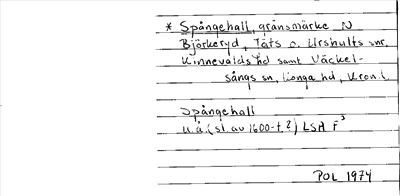 * Spångehall, gränsmärke N
Björkeryd, Täts o. Urshults snr,
Kinnevalds hd samt Väckel-
sångs sn, Konga hd, Kron. l.
Spångehall
u.å. (sl. av 1600-t.?) LSA F³
POL 1974